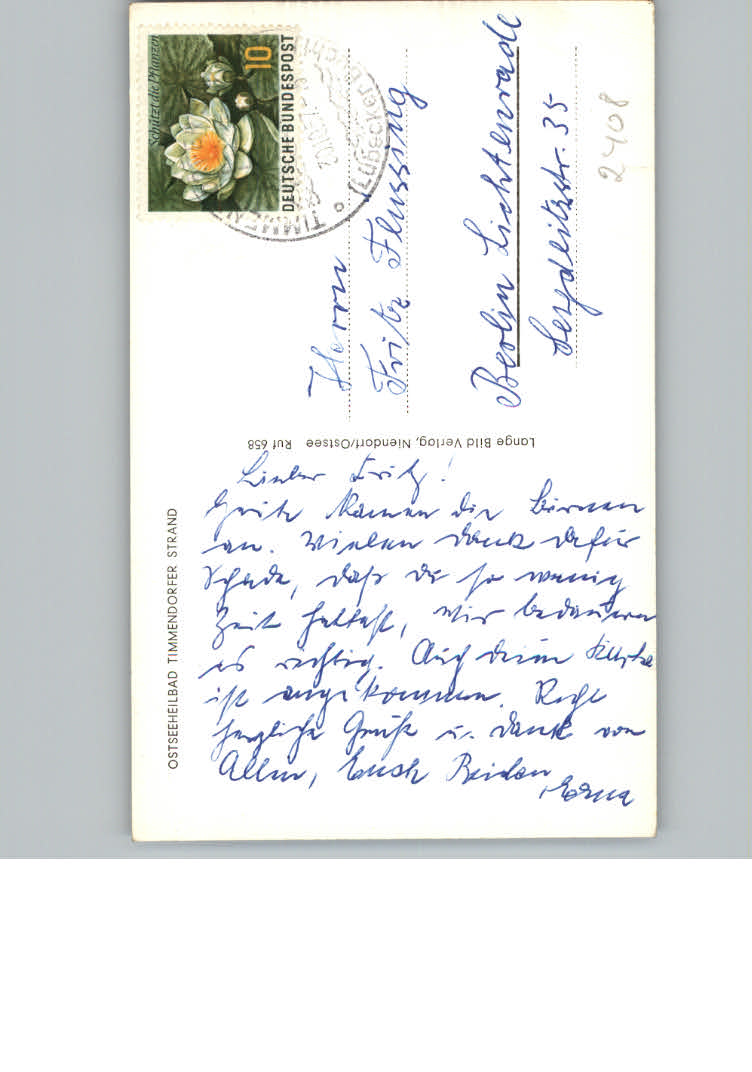 Schützt die Pflanzen
10
DEUTSCHE BUNDESPOST
TIMMEN
(Lübecker Bucht)
Herrn
Fritz Flussing
Berlin Lichtenrade
Seydlitzstr. 35
2408
Lange Bild Verlag, Niendorf/Ostsee Ruf 658
OSTSEEHEILBAD TIMMENDORFER STRAND
Lieber Fritz!
Heute kamen die Birnen
an. Vielen Dank dafür
Schade, daß du so wenig
Zeit hattest, wir bedauern
es richtig. Auch deine Karte
ist angekommen. Recht
herzliche Grüße u. Dank von
Allen, Euch Beiden
Erna